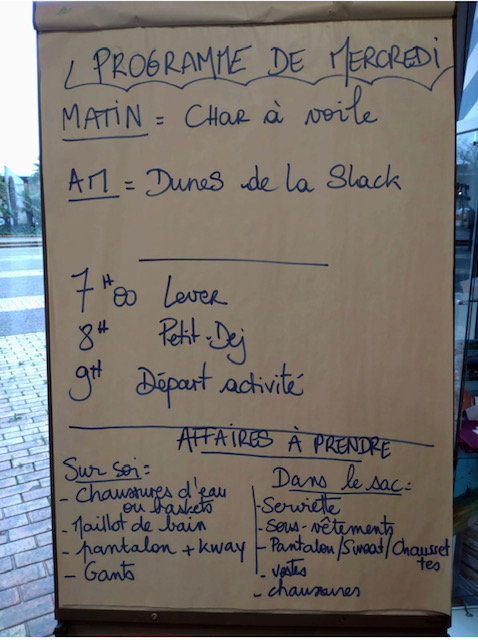 PROGRAMME DE MERCREDI
MATIN = CHAR à voile
AM = Dunes de la Slack
7H00 Lever
8H Petit-Dej
9H Départ activité
AFFAIRES À PRENDRE
Sur soi :
- Chaussures d'eau
ou baskets
- Maillot de bain
- pantalon + kway
- Gants
Dans le sac :
- Serviette
- Sous-vêtements
- Pantalon/Sweat/Chausset
tes
- vestes
- chaussures